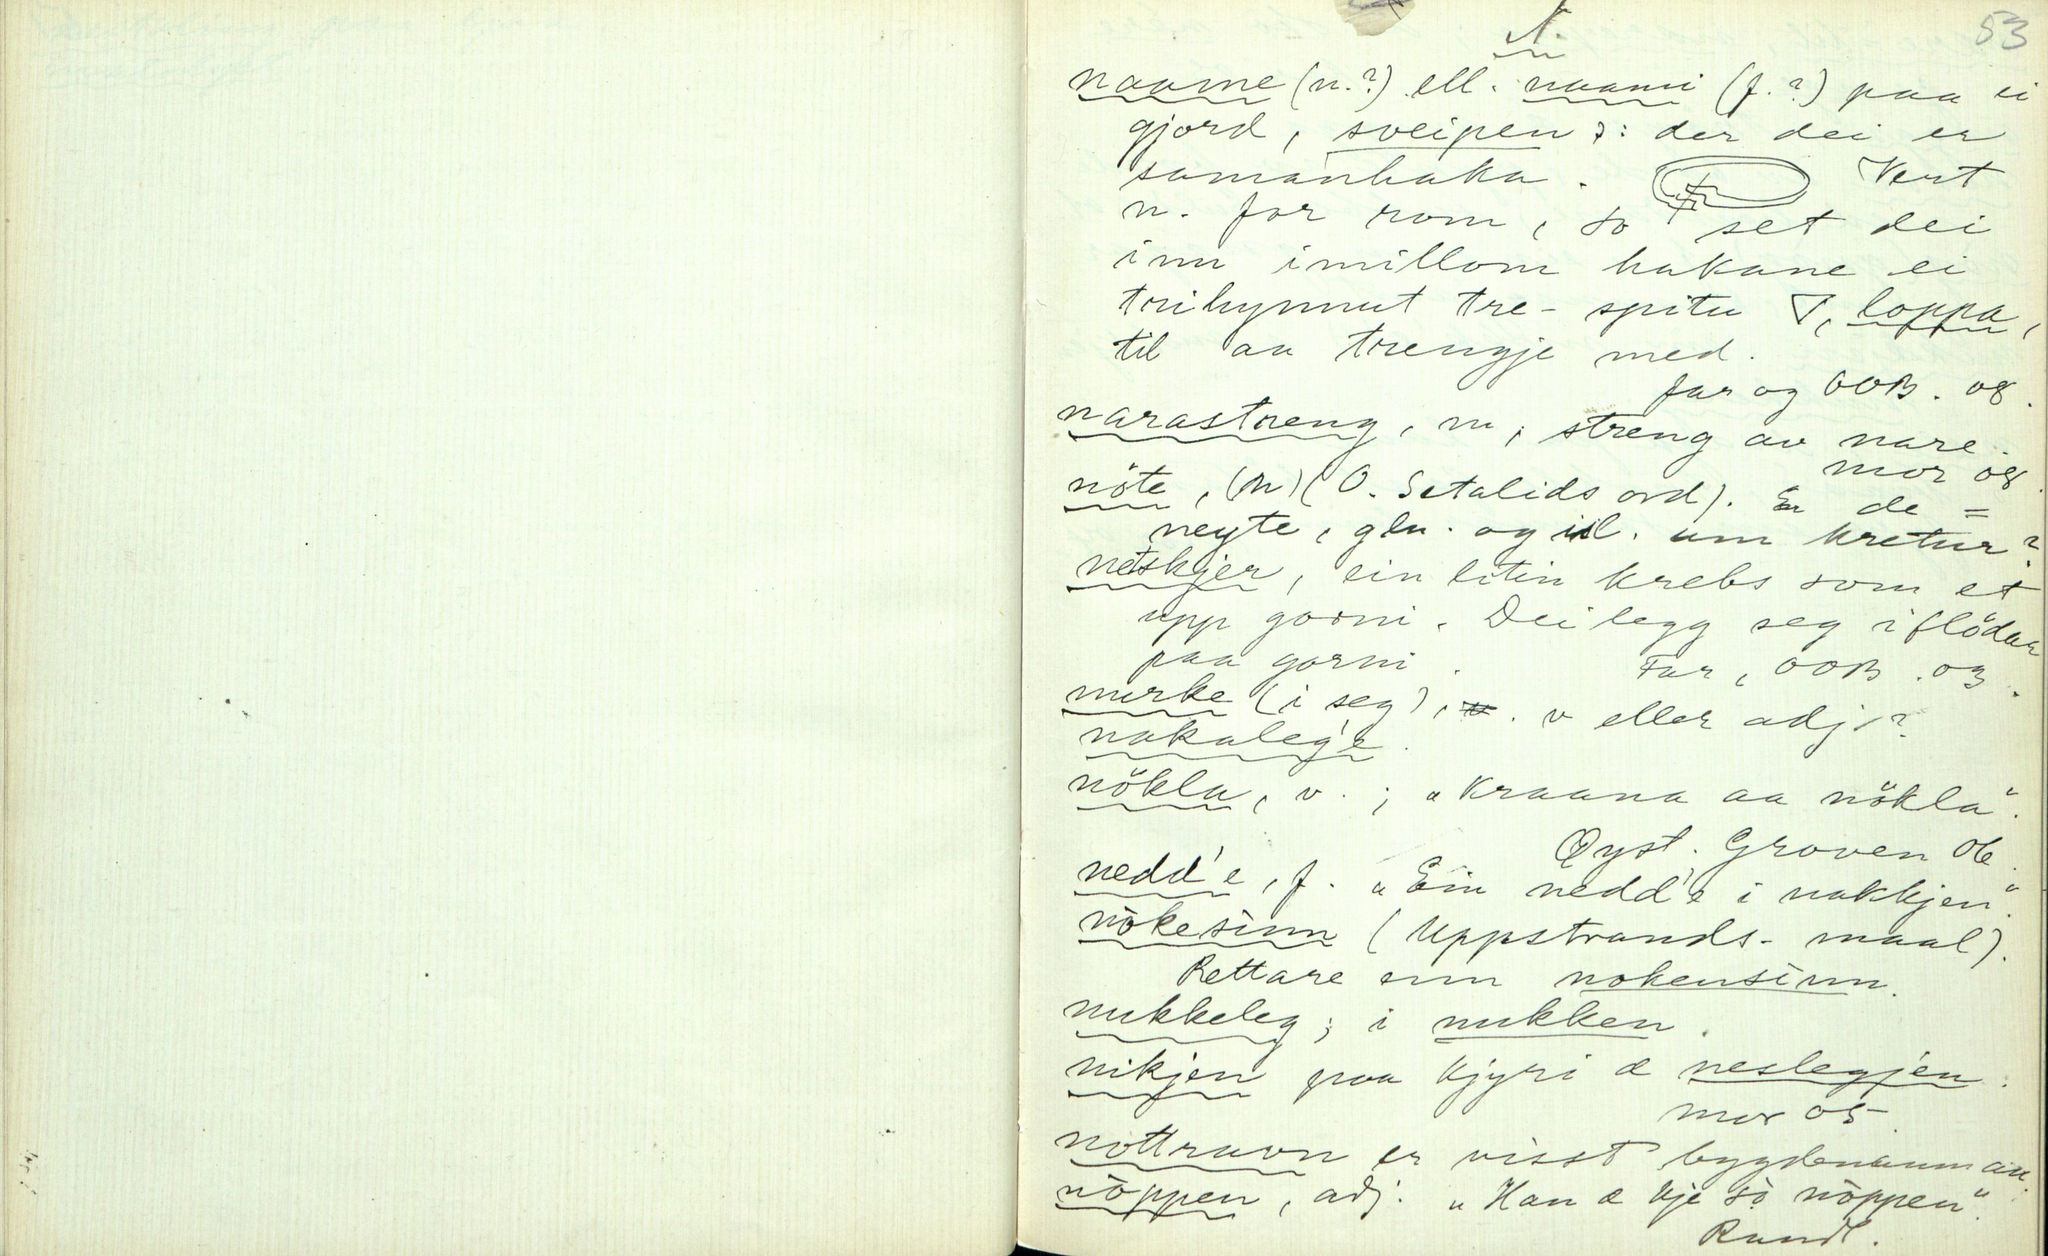 N.
53
naame (n.?) ell. naami (f.?) paa ei
gjord, sveipen ɔ: der dei er
samanhaka. Vert
n. for rom, so set dei
inn imillom hakane ei
trihynnut tre-spitu, loppa,
til aa trengje med.
far og OOB. 08.
narastreng, m, streng av nare.
mor 08.
nöte, (n) (O. Setalids ord). Er de =
neyte, gln. og isl. um kretur?
netskjer, ein litin krebs som et
upp gorni. Dei legg seg i flödaa
paa gorni. Far, OOB. 03.
nurke (i seg), v eller adj?
nakaleg'e.
nökla, v.; "kraana aa nökla".
Øyst. Groven 06.
nedd'e, f. "Ein nedd'e i nakkjen".
nökesinn (Uppstrands-maal).
Rettare enn nokensinn.
nukkeleg; i nukken.
nikjen paa kjyri æ neslegjen.
mor 05
nottravn er visst bygdenamn au.
nöppen, adj. "Han æ kje sò nöppen".